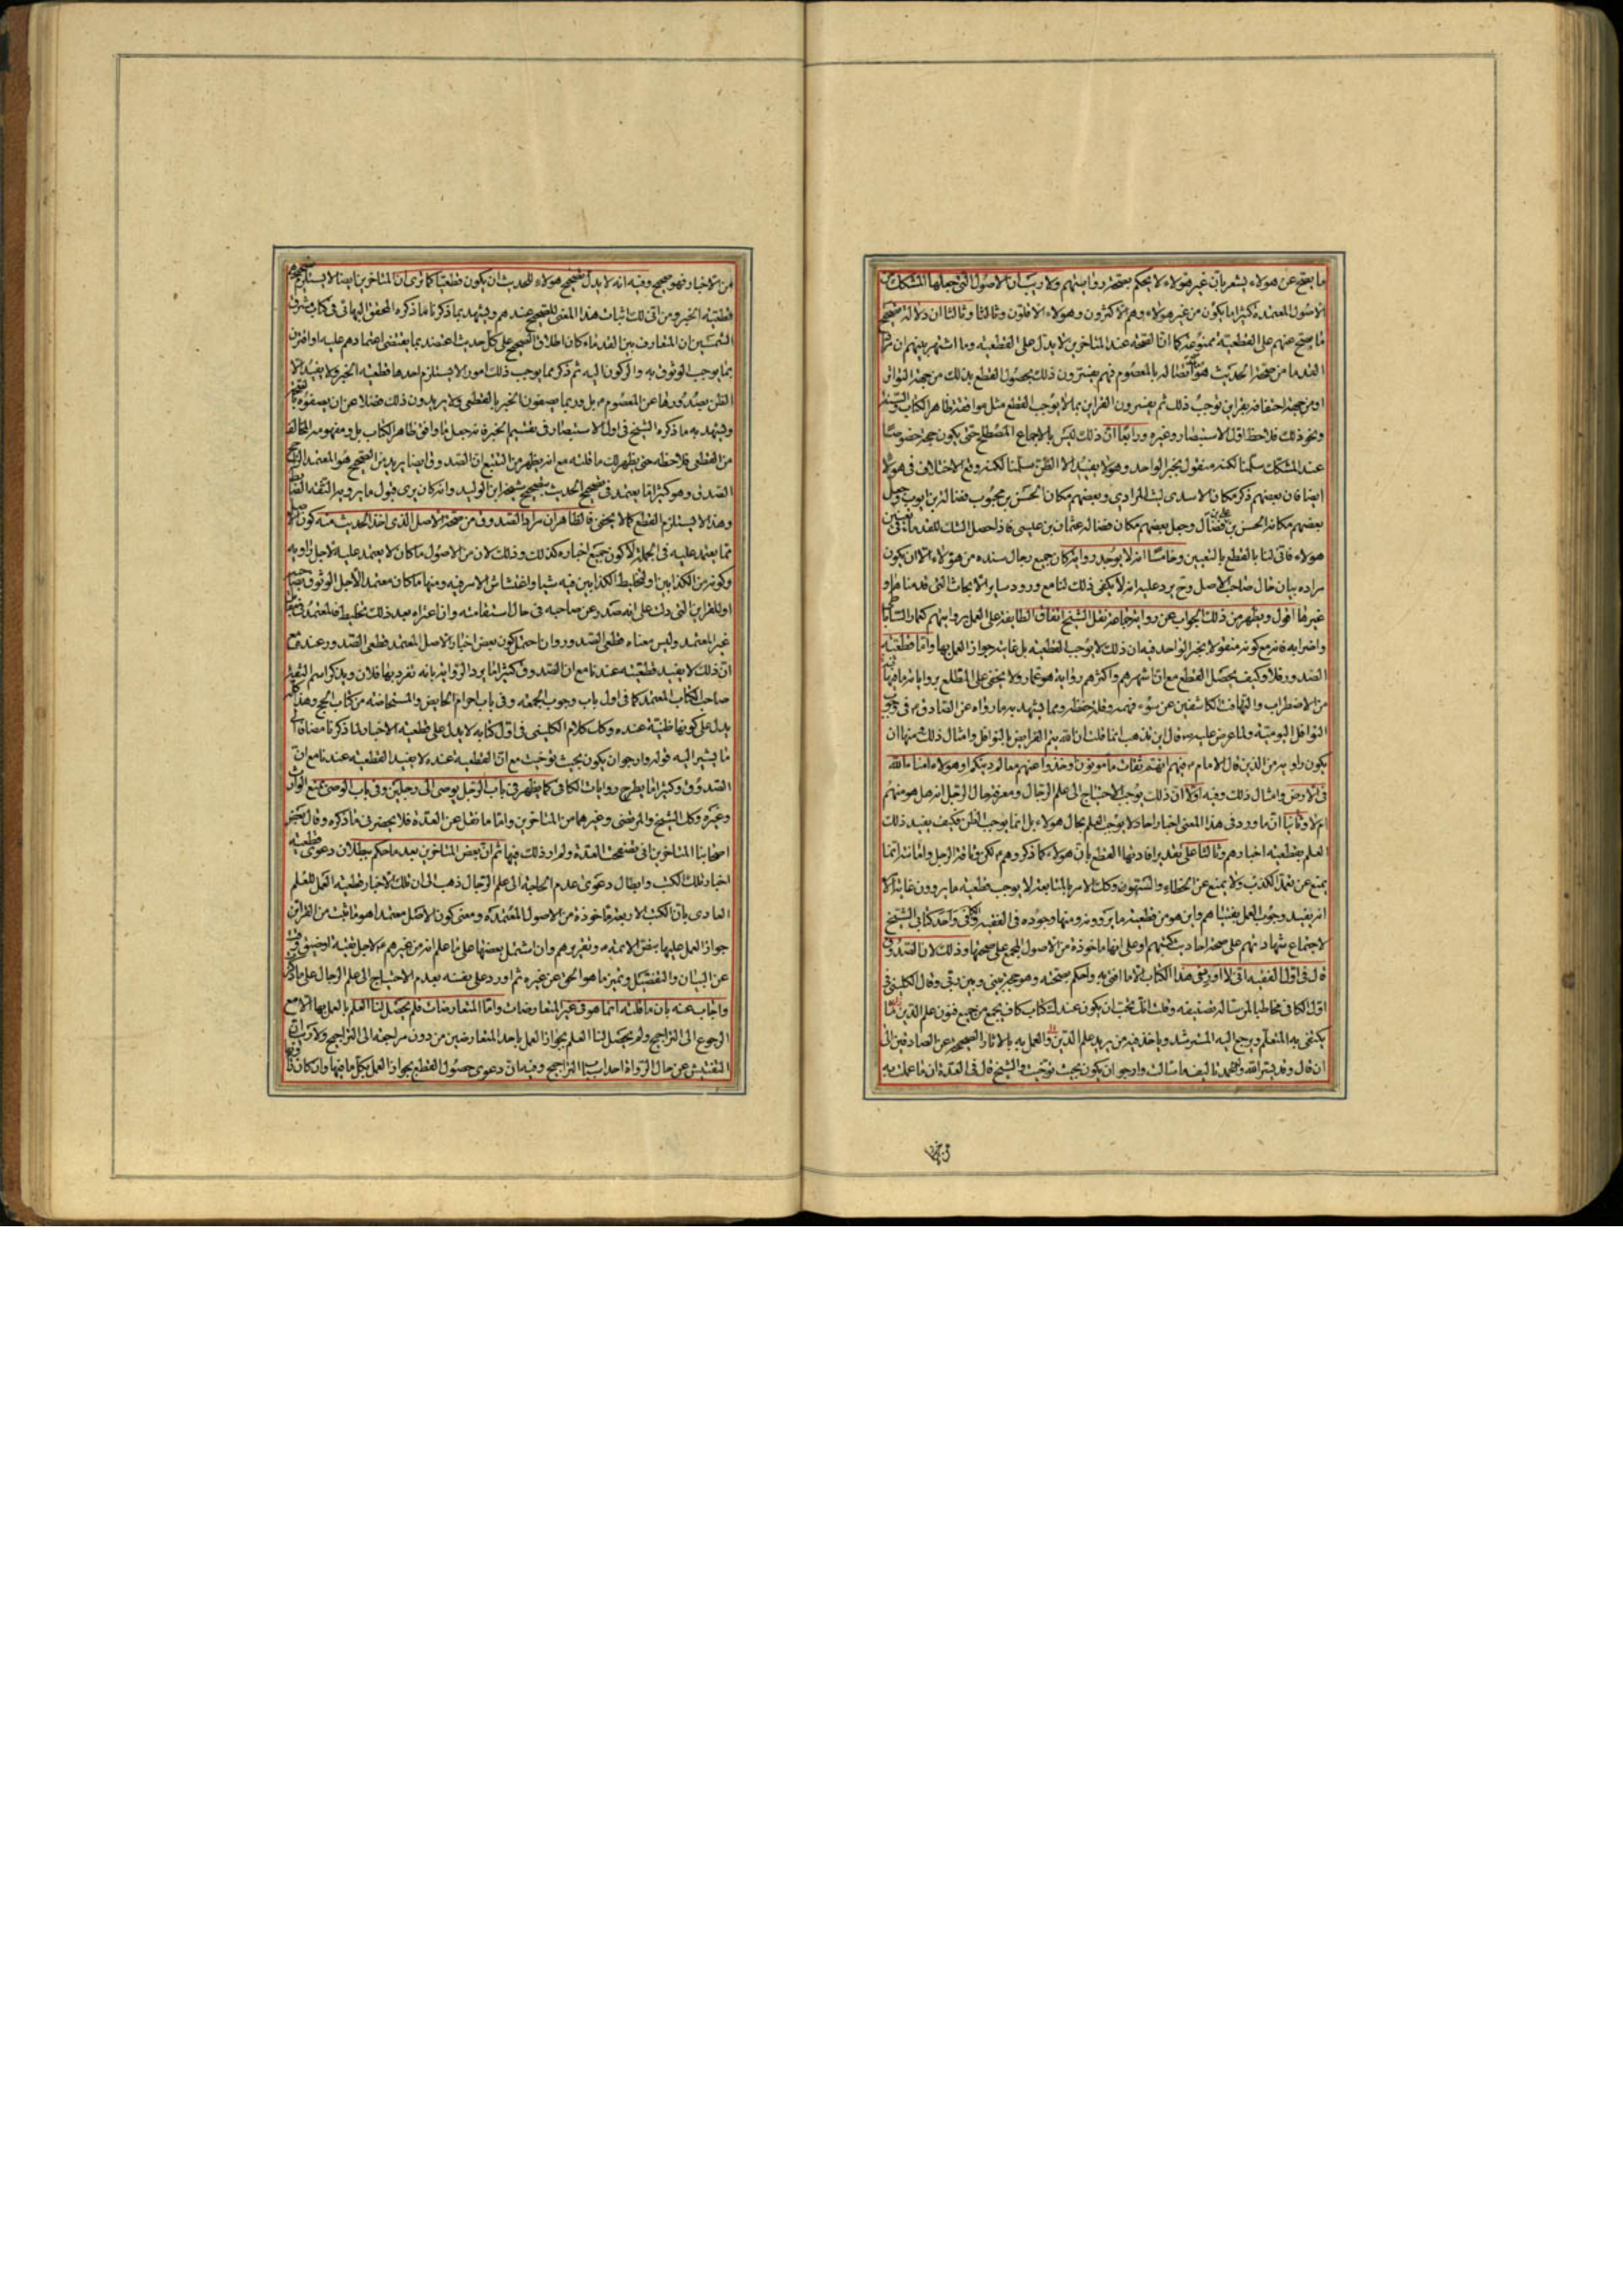 ما يصح عن هؤلاء يشعر بان غير هؤلاء لا يحكم بصحة رواياتهم ولا ريب ان الاصول التى جعلها المشكك من
الاصول المعتمدة كثيرا ما يكون من غير هؤلاء وهم الاكثرون وهؤلاء الاقلون وثالثا ان دلالة تصحيح
ما يصح عنهم على القطعية ممنوعة كما ان الصحة عند المتاخرين لا يدل على القطعية وما اشتهر بينهم ان
القدما من صحة الحديث هو اتصاله بالمعصوم فهم يفسرون ذلك بحصول القطع بذلك من جهة التواتر
او من جهة احتفافه بقراين توجب ذلك ثم يفسرون القراين بما لا يوجب القطع مثل موافقة ظاهر الكتاب والسنة
ونحو ذلك فلاحظ اول الاستبصار وغيره ورابعا ان ذلك ليس بالاجماع المصطلح حتى يكون حجة خصوصا
عند المشكك سلمنا لكنه منقول بخبر الواحد وهو لا يفيد الا الظن سلمنا لكنه وقع الاختلاف فى هؤلاء
ايضا فان بعضهم ذكر مكان الاسدى ليث المرادى وبعضهم مكان الحسن بن محبوب فضالة بن ايوب وجعل
بعضهم مكانه الحسن بن على بن فضال وجعل بعضهم مكان فضالة عثمان بن عيسى فاذا حصل الشك للقدماء فى تعيين
هؤلاء فانى لنا بالقطع بالتعيين وخامسا انه لا يوجد رواية كان جميع رجال سنده من هؤلاء الا ان يكون
مراده بيان حال صاحب الاصل وح يرد عليه انه لا يكفى ذلك لنا مع ورود ساير الابحاث التى قدمناها و
غيرها اقول ويظهر من ذلك الجواب عن رواية جماعة نقل الشيخ اتفاق الطائفة على العمل بروايتهم كعمار الساباطى
واضرابه فانه مع كونه منقولا بخبر الواحد فيه ان ذلك لا يوجب القطعية بل غايته جواز العمل بها واما قطعية
الصدور فلا وكيف يحصل القطع مع ان اشهرهم واكثرهم رواية هو عمار ولا يخفى على المطلع برواياته ما فيها
من الاضطراب والتهافت الكاشفين عن سوء فهمه وقلة حفظه ومما يشهد به ما رواه عن الصادق فى وجوب
النوافل اليومية ولما عرض عليه قال اين تذهب انما قلت ان الله يتم الفرايض بالنوافل وامثال ذلك منها ان
يكون راويه من الذين قال الامام فيهم انهم ثقات مامونون او خذوا عنهم معالم دينكم او هؤلاء امناء الله
فى الارض وامثال ذلك وفيه اولا ان ذلك يوجب الاحتياج الى علم الرجال ومعرفة حال الرجل انه هل هو منهم
ام لا وثانيا ان ما ورد فى هذا المعنى اخبار احاد لا يوجب العلم بحال هؤلاء بل انما يوجب الظن فكيف يفيد ذلك
العلم بقطعية اخبارهم وثالثا على تقدير افادتها القطع بان هؤلاء كما ذكروهم لكن وثاقة الرجل وامانته انما
يمنع عن تعمد الكذب ولا يمنع عن الخطاء والسهو وكك الامر بالمتابعة لا يوجب قطعية ما يروون غاية الامر
انه يفيد وجوب العمل بفتياهم واين هو من قطعية ما يروونه ومنها وجوده فى الفقيه والكافى واحد كتابى الشيخ
لاجتماع شهاداتهم على صحة احاديث كتبهم او على انها ماخوذة من الاصول المجمع على صحتها وذلك لان الصدوق
قال فى اول الفقيه انى لا اورد فى هذا الكتاب الا ما افتى به واحكم بصحته وهو حجة بينى وبين ربى وقال الكلينى فى
اول الكافى مخاطبا لمن سئاله تصنيفه وقلت انك تحب ان يكون عندك كتاب كاف يجمع من جميع فنون علم الدين ما
يكتفى به المتعلم ويرجع اليه المسترشد وياخذ منه من يريد علم الدين والعمل به بالاثار الصحيحة عن الصادقين الى
ان قال وقد يسر الله وله الحمد تاليف ما سالت وارجو ان يكون بحيث توخيت والشيخ قال فى العدة ان ما عملت به
من الاخبار فهو صحيح وفيه انه لا يدل تصحيح هؤلاء للحديث ان يكون قطعيا كما ترى ان المتاخرين ايضا لا يستلزم تصحيحهم
قطعية الخبر ومن اتى لك اثبات هذا المعنى للصحيح عندهم ويشهد بما ذكرنا ما ذكره المحقق البهائى فى كتاب مشرق
الشمسين ان المتعارف بين القدماء كان اطلاق الصحيح على كل حديث اعتضد بما يقتضى اعتمادهم عليه او اقترن
بما يوجب الوثوق به والركون اليه ثم ذكر مما يوجب ذلك امورا لا يستلزم احدها قطعية الخبر ولا يفيد الا
الظن بصدورها عن المعصوم بل وربما يصفون الخبر بالقطعى ولا يريدون ذلك فضلا عن ان يصفوه بالصحة
ويشهد به ما ذكره الشيخ فى اول الاستبصار فى تقسيم الخبر فانه جعل ما وافق ظاهر الكتاب بل ومفهومه المخالف
من القطعى فلاحظه حتى يظهر لك ما قلته مع انه يظهر من التتبع ان الصدوق ايضا يريد من الصحيح هو المعتمد
الصدق وهو كثيرا ما يعتمد فى تصحيح الحديث بتصحيح شيخه ابن الوليد وانه كان يرى قبول ما يرويه الثقة
وهذا لا يستلزم القطع كما لا يخفى فالظاهر ان مراد الصدوق من صحة الاصل الذى اخذ الحديث منه كون الاصل
مما يعتمد عليه فى الجملة لا كون جميع اخباره كذلك وذلك لان من الاصول ما كان لا يعتمد عليه لاجل راويه
وكونه من الكذابين او لتخليط الكذابين فيه شيئا واغتشاش الامر فيه ومنها ما كان معتمدا لاجل الوثوق بصاحبه
او للقراين التى دلت على انه صدر عن صاحبه فى حال استقامته وان اعتراه بعد ذلك تخليط فالمعتمد فى مقابل
غير المعتمد وليس معناه قطعى الصدور وان احتمل كون بعض اخبار الاصل المعتمد قطعى الصدور عندهم مع
ان ذلك لا يفيد قطعيته عندنا مع ان الصدوق كثيرا ما يرد الرواية بانه تفرد بها فلان ويذكر اسم الثقة
صاحب الكتاب المعتمد كما فى اول باب وجوب الجمعة وفى باب احرام الحايض والمستحاضة من كتاب الحج وهذا كله
يدل على كونها ظنية عنده وكك كلام الكلينى فى اول كتابه لا يدل على قطعية الاخبار لما ذكرنا مضافا الى
ما يشير اليه قوله وارجو ان يكون بحيث توخيت مع ان القطعية عنده لا يفيد القطعية عندنا مع ان
الصدوق وكثيرا ما يطرح روايات الكافى كما يظهر فى باب الرجل يوصى الى رجلين وفى باب الوصى يمنع الوارث
وغيره وكك الشيخ والمرتضى وغيرهما من المتاخرين واما ما نقل عن العدة فلا يحضرنى ما ذكره وقال بعض
اصحابنا المتاخرين انى تصفحت العدة ولم ار ذلك فيها ثم ان بعض المتاخرين بعد ما حكم ببطلان دعوى قطعية
اخبار تلك الكتب وابطال دعوى عدم الحاجة الى علم الرجال ذهب الى ان تلك الاخبار قطعية العمل للعلم
العادى بان الكتب الاربعة ماخوذة من الاصول المعتمدة ومعنى كون الاصل معتمدا هو ما ثبت من القراين
جواز العمل عليها بنص الائمة وتقريرهم وان اشتمل بعضها على ما علم انه من غيرهم لاجل تقية او ضيق وقت
عن البيان والتفصيل وتميز ما هو الحق عن غيره ثم اورد على نفسه بعدم الاحتياج الى علم الرجال على ما ذكر
واجاب عنه بان ما قلته انما هو فى غير المتعارضات واما المتعارضات فلم يحصل لنا العلم بالعمل بها الا مع
الرجوع الى التراجيح ولم يحصل لنا العلم بجواز العمل باحد المتعارضين من دون مراجعة الى التراجيح ولا ريب ان
التفتيش عن حال الرواة احد اسباب التراجيح وفيه ان دعوى حصول القطع بجواز العمل بكل ما فيها وان كان